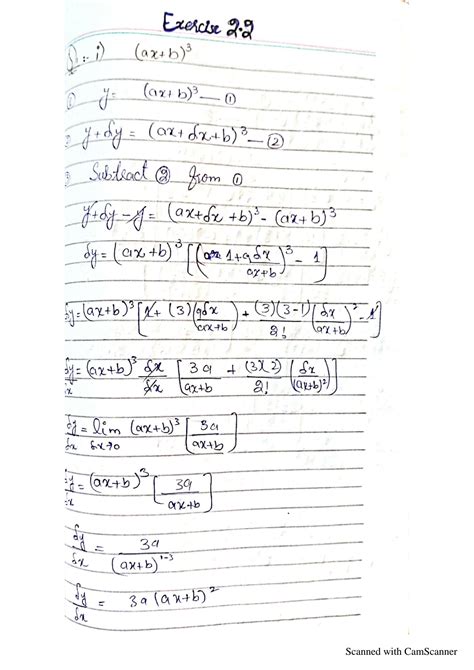 Exercise 2.2
Q:- i) (ax+b)³
① y = (ax+b)³ — ①
② y+δy = (ax+δx+b)³ — ②
③ Subtract ② from ①
y+δy-y = (ax+δx+b)³ - (ax+b)³
δy = (ax+b)³ [(1+aδx/ax+b)³ - 1]
δy = (ax+b)³ [1 + (3)(aδx/ax+b) + (3)(3-1)/2! (δx/ax+b)² - 1]
δy/δx = (ax+b)³ δx/δx [3a/ax+b + (3)(2)/2! (δx/(ax+b)²)]
δy/δx = lim δx→0 (ax+b)³ [3a/ax+b]
δy/δx = (ax+b)³ [3a/ax+b]
δy/δx = 3a/(ax+b)¹⁻³
δy/δx = 3a(ax+b)²
Scanned with CamScanner